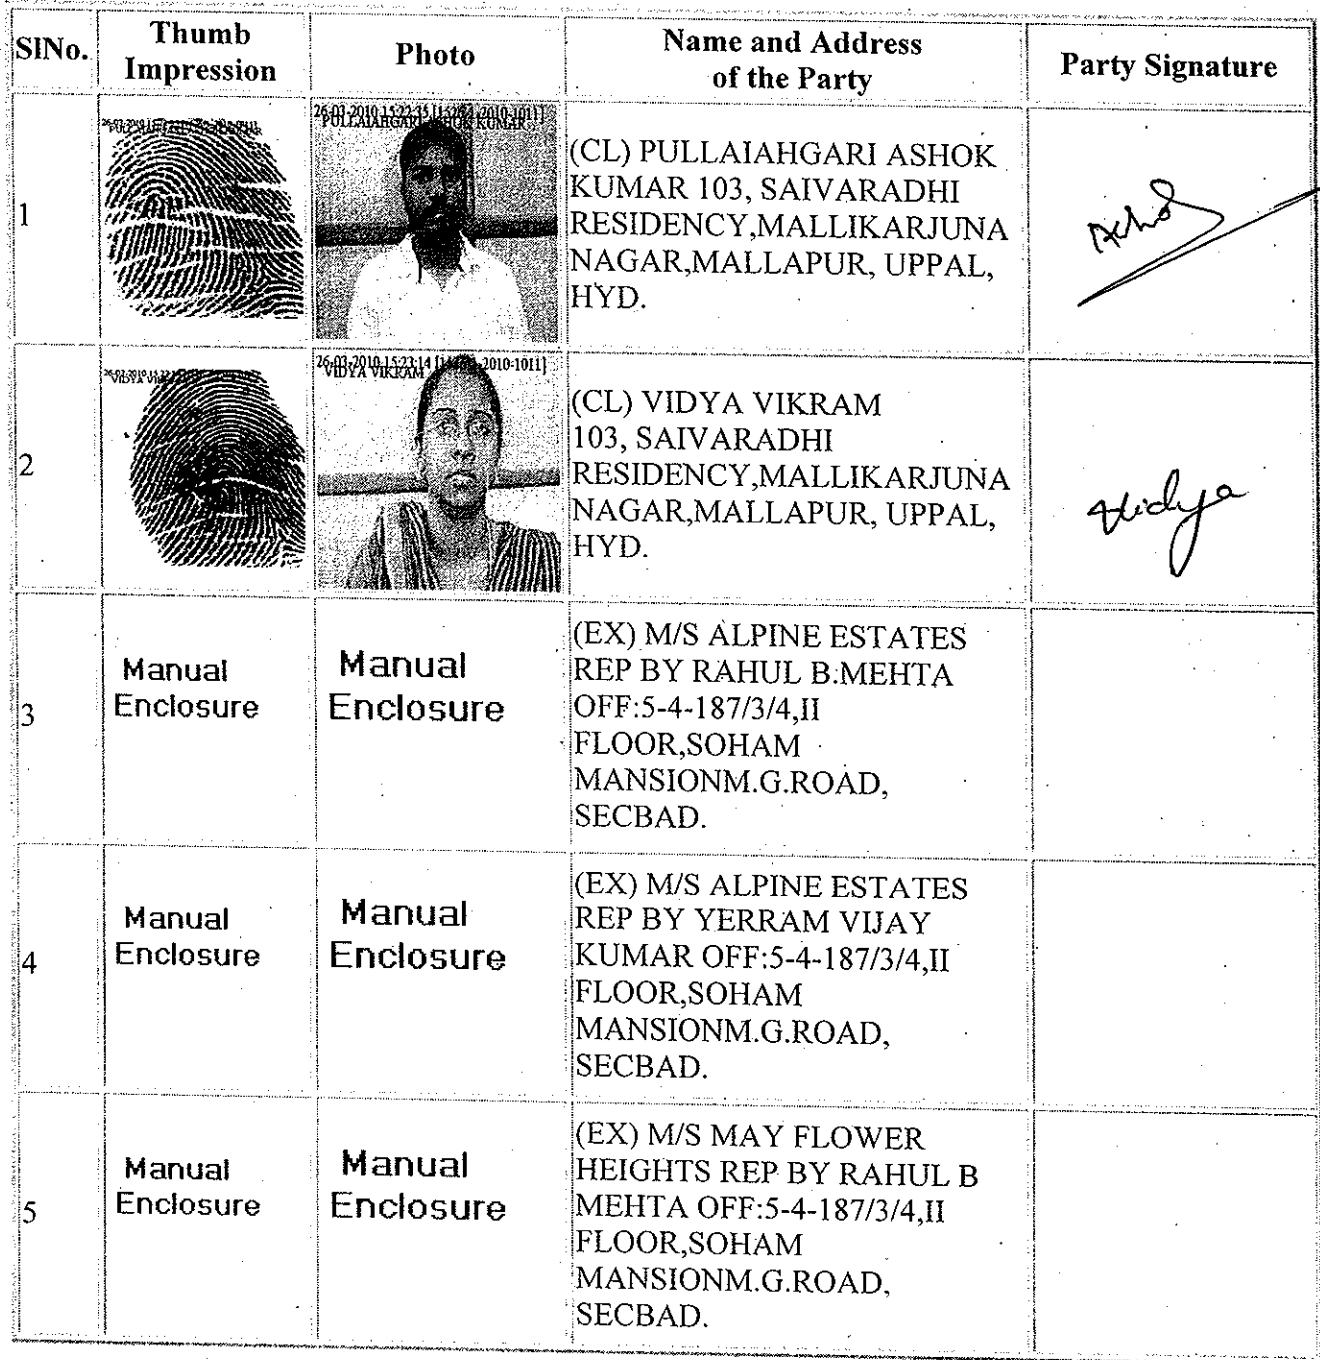 SlNo.
Thumb
Impression
Photo
Name and Address
of the Party
Party Signature
1
26-03-2010 15:22:35
PULLAIAHGARI ASHOK KUMAR
(CL) PULLAIAHGARI ASHOK
KUMAR 103, SAIVARADHI
RESIDENCY,MALLIKARJUNA
NAGAR,MALLAPUR, UPPAL,
HYD.
Ashok
2
VIDYA
26-03-2010 15:23:14 2010-1011]
VIDYA VIKRAM
(CL) VIDYA VIKRAM
103, SAIVARADHI
RESIDENCY,MALLIKARJUNA
NAGAR,MALLAPUR, UPPAL,
HYD.
Vidya
3
Manual
Enclosure
Manual
Enclosure
(EX) M/S ALPINE ESTATES
REP BY RAHUL B.MEHTA
OFF:5-4-187/3/4,II
FLOOR,SOHAM
MANSIONM.G.ROAD,
SECBAD.
4
Manual
Enclosure
Manual
Enclosure
(EX) M/S ALPINE ESTATES
REP BY YERRAM VIJAY
KUMAR OFF:5-4-187/3/4,II
FLOOR,SOHAM
MANSIONM.G.ROAD,
SECBAD.
5
Manual
Enclosure
Manual
Enclosure
(EX) M/S MAY FLOWER
HEIGHTS REP BY RAHUL B
MEHTA OFF:5-4-187/3/4,II
FLOOR,SOHAM
MANSIONM.G.ROAD,
SECBAD.